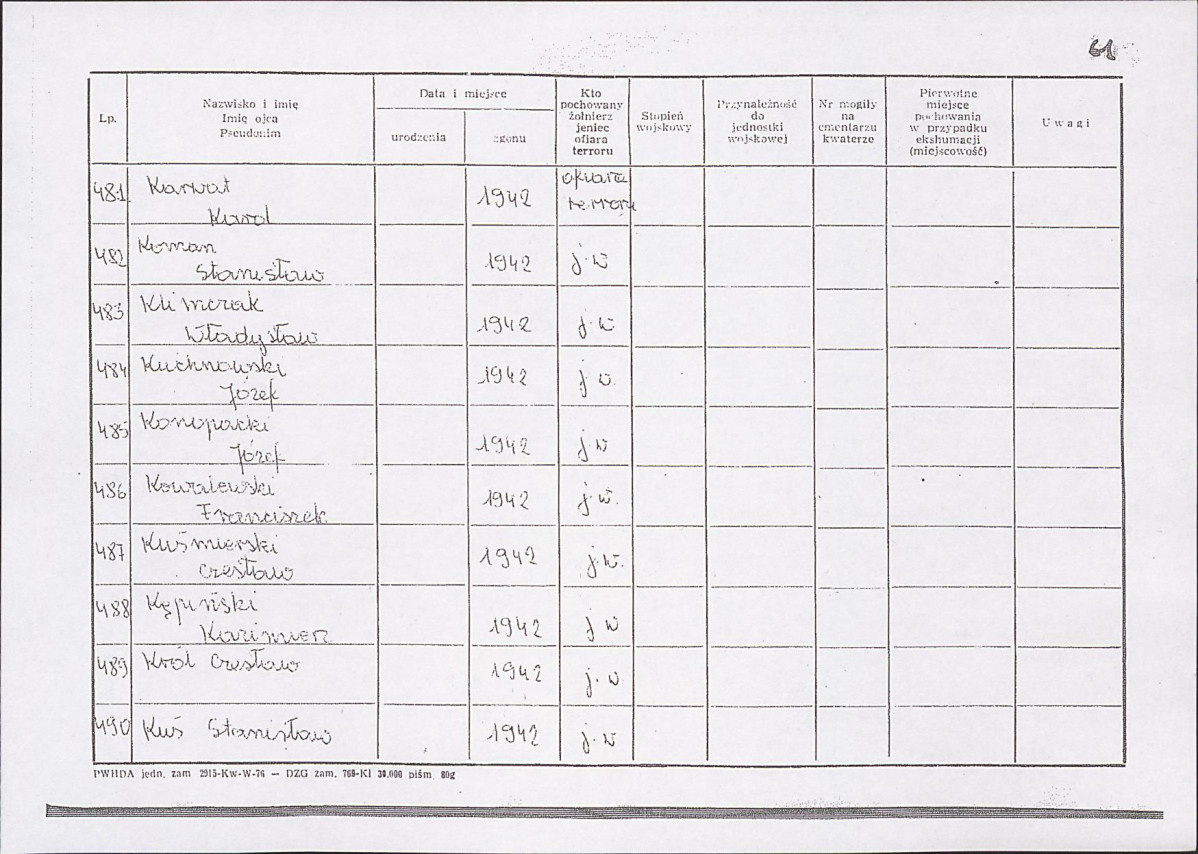 61
Lp.
Nazwisko i imię
Imię ojca
Pseudonim
Data i miejsce
urodzenia
zgonu
Kto
pochowany
żołnierz
jeniec
ofiara
terroru
Stopień
wojskowy
Przynależność
do
jednostki
wojskowej
Nr mogiły
na
cmentarzu
kwaterze
Pierwotne
miejsce
pochowania
w przypadku
ekshumacji
(miejscowość)
Uwagi
481 Karwat 1942 ofiara
Karol terroru
482 Koman 1942 j.w
Stanisław
483 Klimczak 1942 j.w
Władysław
484 Kuchnowski 1942 j.w.
Józef
485 Konopacki 1942 j.w
Józef
486 Kowalewski 1942 j.w.
Franciszek
487 Kuśmierski 1942 j.w.
Czesław
488 Kępiński 1942 j w
Kazimierz
489 Król Czesław 1942 j.w
490 Kuś Stanisław 1942 j.w
PWHDA jedn. zam 2915-Kw-W-76 — DZG zam. 769-Kl 30.000 piśm. 80g